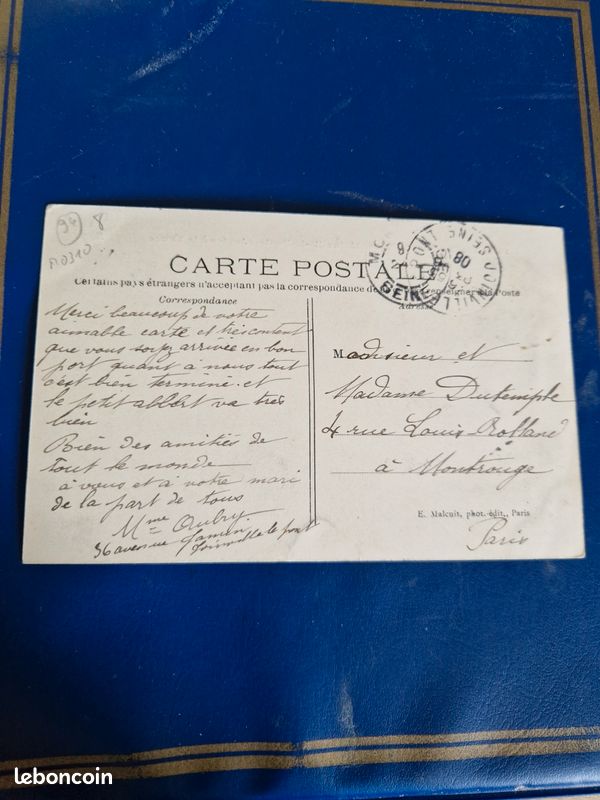 94 8
A0310
CARTE POSTALE
Certains pays étrangers n'acceptant pas la correspondance de se renseigner à la Poste
Correspondance
Adresse
Merci beaucoup de votre
aimable carte et très content
que vous soyez arrivée en bon
port quant à nous tout
c'est bien terminé et
le petit albert va très
bien
Bien des amitiés de
tout le monde
à vous et à votre mari
de la part de tous
Mme Aubry
36 avenue
Joinville le pont
Monsieur et
Madame Dutemple
4 rue Louis Rolland
à Montrouge
E. Malcuit, phot.-édit., Paris
Paris
JOINVILLE PONT SEINE
08
SEINE
leboncoin